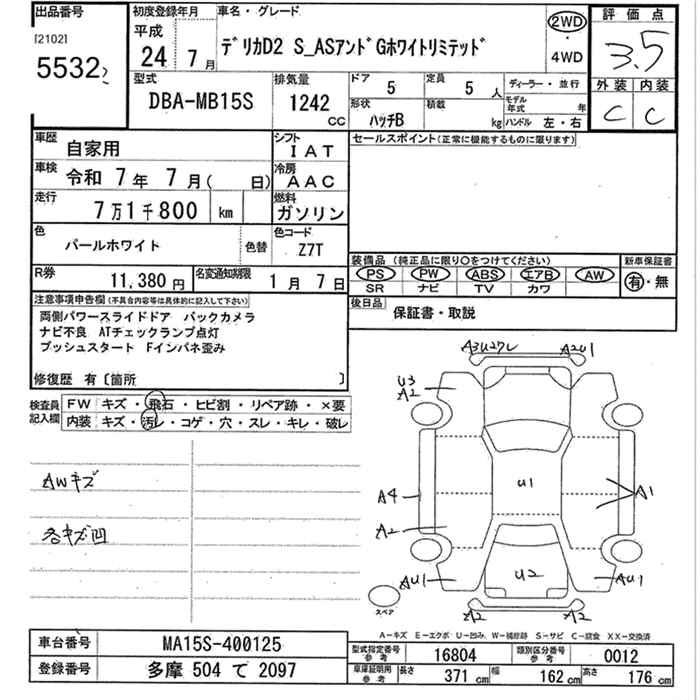 出品番号
[2102]
5532
初度登録年月
平成
24 年 7 月
車名・グレード
デリカD2 S_ASアンドGホワイトリミテッド
2WD
・
4WD
評価点
3.5
外装 内装
C C
型式
DBA-MB15S
排気量
1242 CC
ドア 5
定員 5 人
ディーラー・並行
形状 ハッチB
積載 kg
モデル年式 年
ハンドル 左・右
車歴 自家用
シフト IAT
セールスポイント(正常に機能するものに限ります)
車検 令和 7年 7月( 日)
冷房 AAC
走行 7万1千800 km
燃料 ガソリン
色 パールホワイト
色替
色コード Z7T
装備品 (純正品に限り○をつけてください)
新車保証書
PS PW ABS エアB AW
SR ナビ TV カワ
有・無
R券 11,380 円
名変通知期限 1月 7日
後日品 保証書・取説
注意事項申告欄(不具合内容等は具体的に記入して下さい)
両側パワースライドドア バックカメラ
ナビ不良 ATチェックランプ点灯
プッシュスタート Fインパネ歪み
修復歴 有〔箇所 〕
検査員記入欄
FW キズ・飛石・ヒビ割・リペア跡・×要
内装 キズ・汚レ・コゲ・穴・スレ・キレ・破レ
AWキズ
各キズ凹
A3U27L A2U1
U3
A2
U1
A4 A1
A2
AU1 U2 AU1
スペア
A2 A2
A-キズ E-エクボ U-凹み W-補修跡 S-サビ C-腐食 XX-交換済
車台番号 MA15S-400125
登録番号 多摩 504 て 2097
型式指定番号 参考 16804
類別区分番号 参考 0012
車庫証明用 参考 長さ 371 cm 幅 162 cm 高さ 176 cm